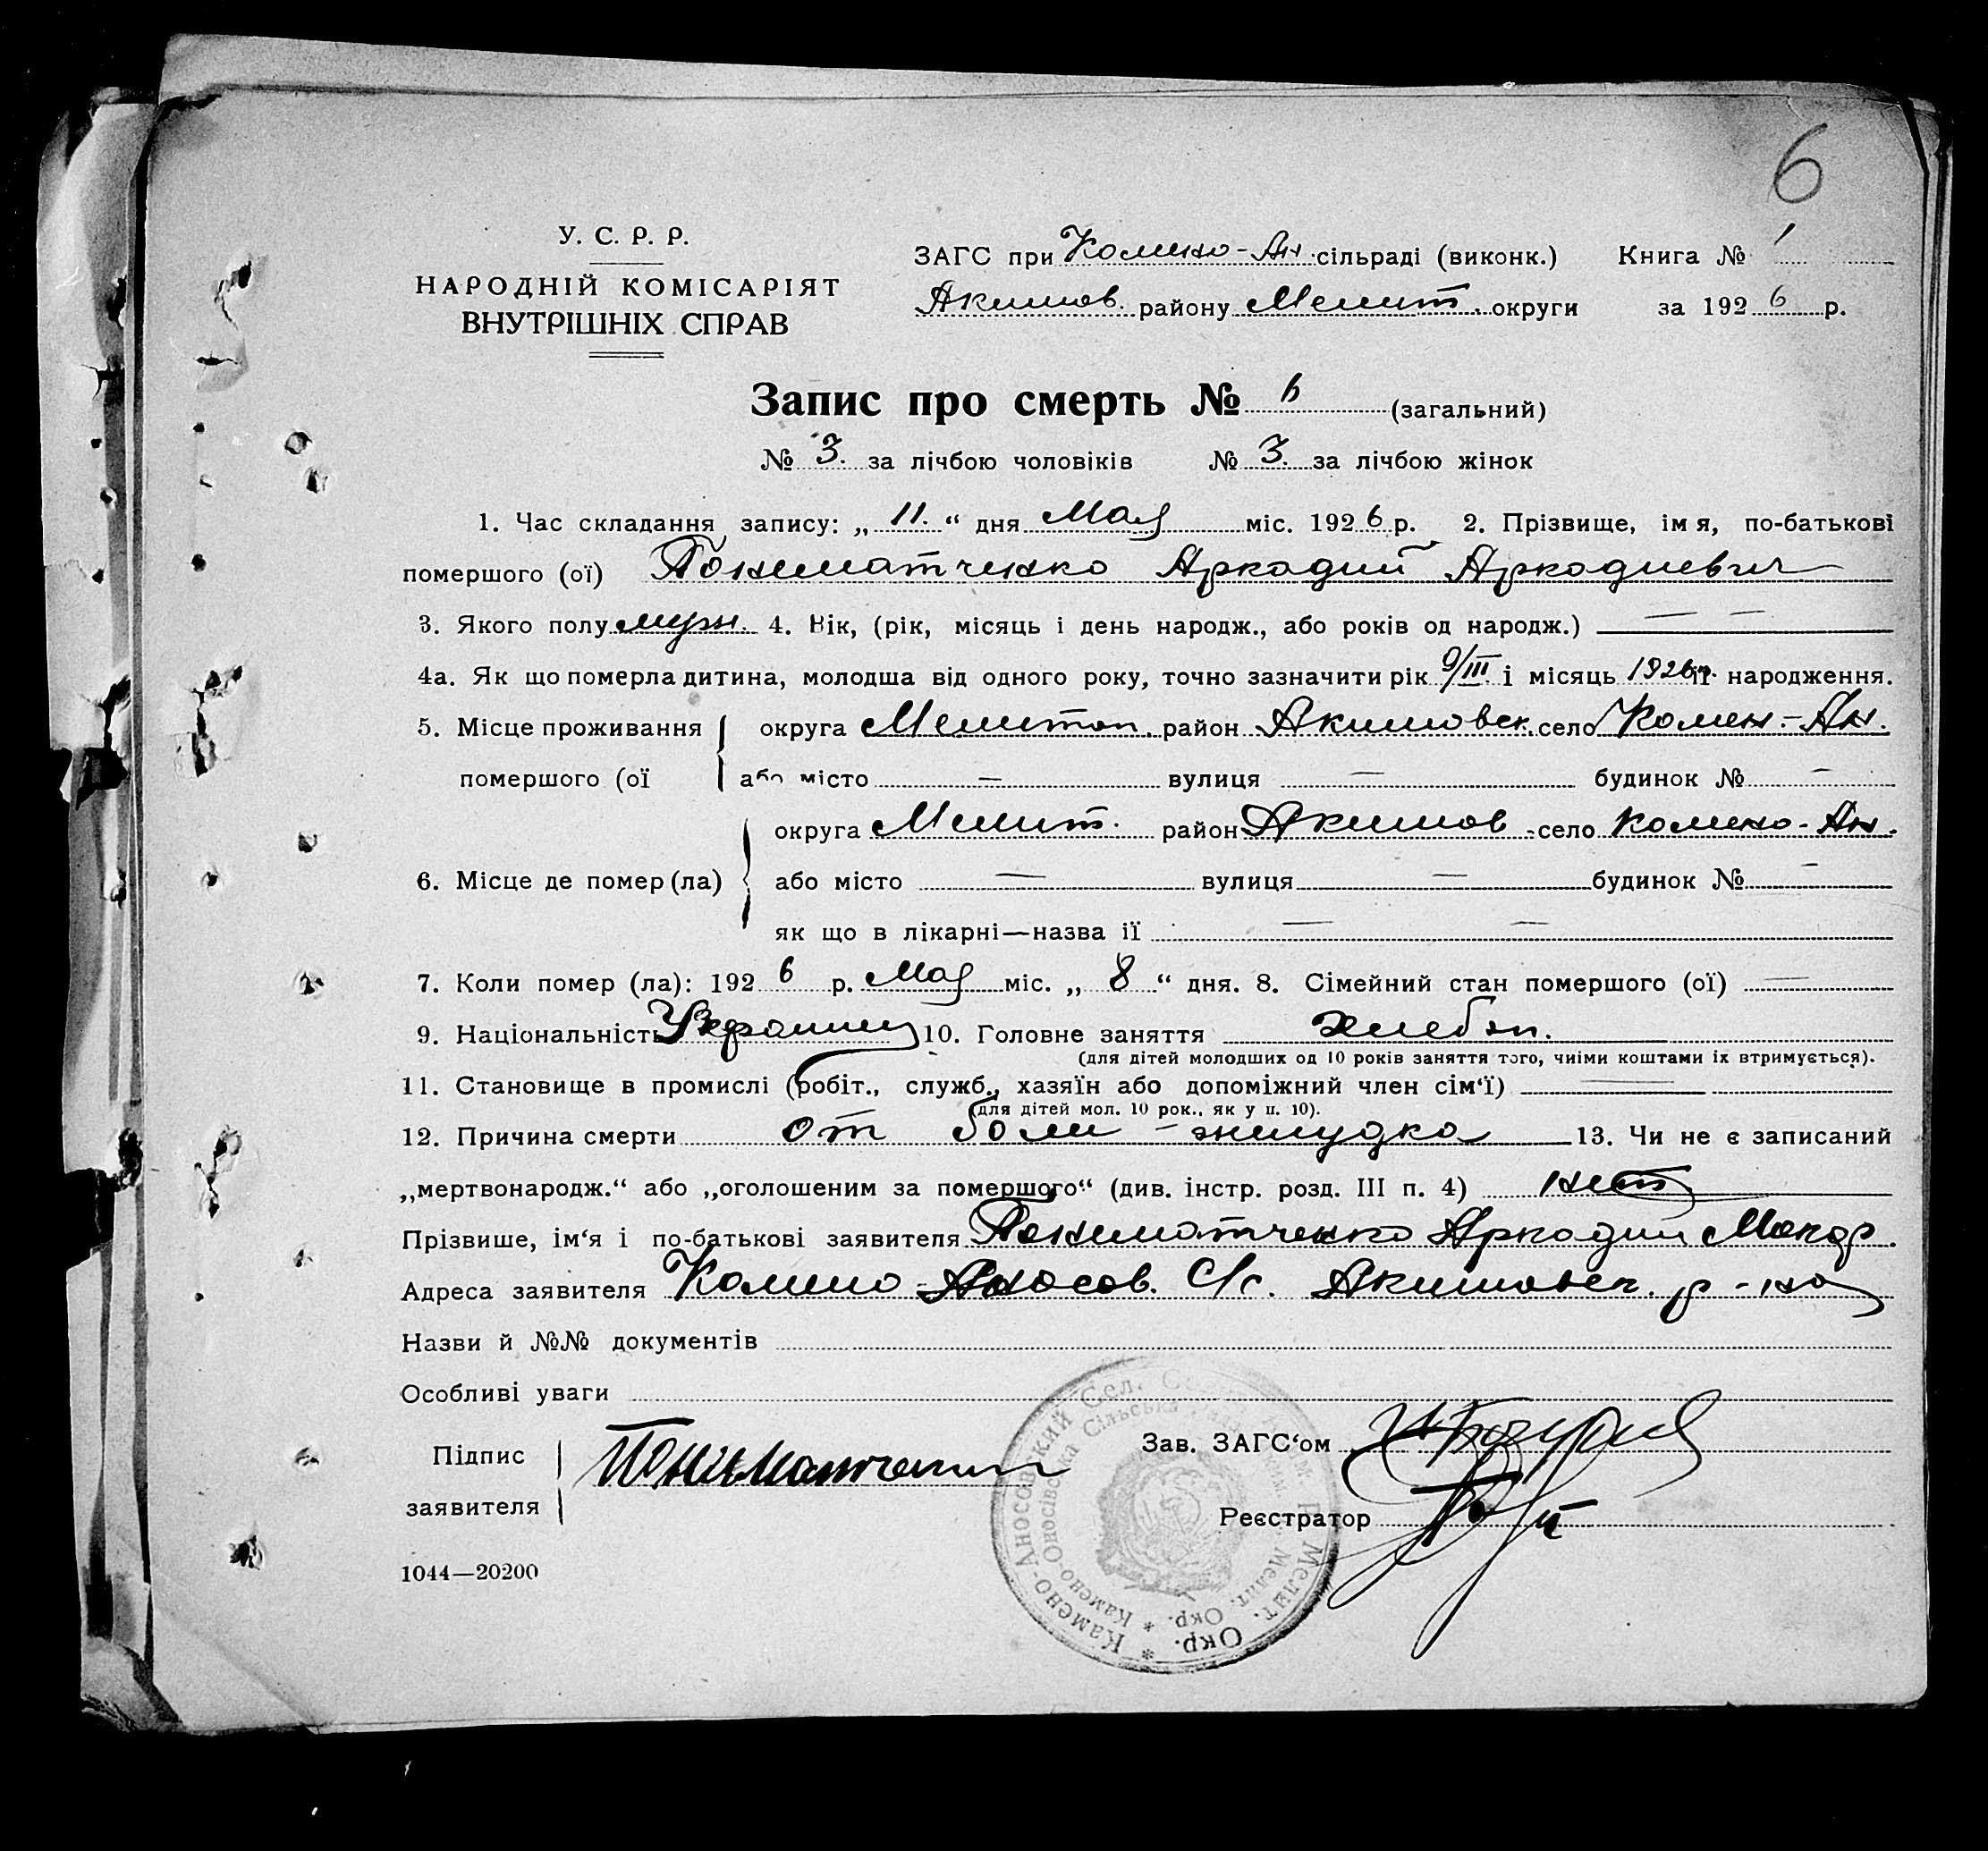 6
У. С. Р. Р.
НАРОДНІЙ КОМІСАРІЯТ
ВНУТРІШНІХ СПРАВ
ЗАГС при Камено-Ан. сільраді (виконк.) Книга № 1
Акимов. району Мелит. округи за 1926 р.
Запис про смерть № 6 (загальний)
№ 3. за лічбою чоловіків № 3. за лічбою жінок
1. Час складання запису: „ 11. “ дня Мая міс. 1926 р. 2. Прізвище, імя, по-батькові
помершого (ої) Пониматченко Аркадий Аркадиевич
3. Якого полу муж. 4. Вік, (рік, місяць і день народж., або років од народж.) — —
4а. Як що померла дитина, молодша від одного року, точно зазначити рік 9/III і місяць 1926 г. її народження.
5. Місце проживання округа Мелитоп. район Акимовск. село Камен.-Ан.
помершого (ої або місто — вулиця — будинок № —
округа Мелит. район Акимов - село Камено-Ан.
6. Місце де помер (ла) або місто — вулиця — будинок № —
як що в лікарні—назва її — —
7. Коли помер (ла): 1926 р. Мая міс. „ 8 “ дня. 8. Сімейний стан помершого (ої) —
9. Національність Украинец 10. Головне заняття хлебоп.
(для дітей молодших од 10 років заняття того, чиїми коштами їх втримується).
11. Становище в промислі (робіт., служб., хазяїн або допоміжний член сім‘ї) —
(для дітей мол. 10 рок., як у п. 10).
12. Причина смерти от боли - жилудка 13. Чи не є записаний
„мертвонародж.“ або „оголошеним за помершого“ (див. інстр. розд. III п. 4) нет
Прізвише, ім‘я і по-батькові заявителя Пониматченко Аркадий Макар.
Адреса заявителя Камено-Аносов. С/с. Акимовск. р-на
Назви й №№ документів
Особливі уваги
Підпис
заявителя
Пониматченко
Зав. ЗАГС‘ом
Реєстратор
1044—20200
* Камено-Аносовский Сел. Мелит. Окр.
* Камено-Оносівська Сільська Мелит. Окр.